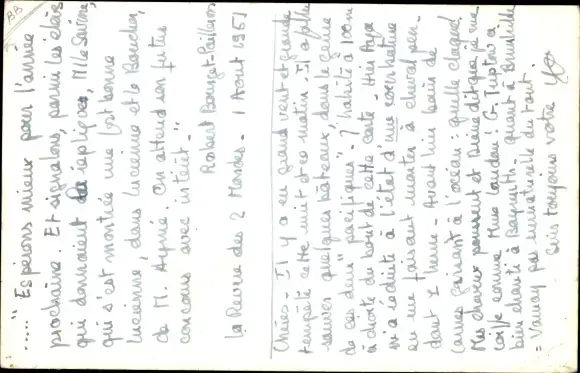 ....." Espérons mieux pour l'année
prochaine. Et signalons, parmi les élèves
qui donnaient les répliques, Mlle
qui s'est montrée une fort bonne
Lucienne, dans Lucienne et le Boucher,
de M. Aymé. On attend son futur
concours avec intérêt."
Robert
La Revue des 2 Mondes - 1 Août 1951
Chéies - Il y a eu grand vent et grande
tempête cette nuit et ce matin. Il a fallu
sauver quelques bateaux, dans le genre
de ces deux "pacifiques" - J'habite à 100 m
à droite du bout de cette carte - Hier
m'a réduite à l'état d'une courbature
en me faisant monter à cheval pen-
dant 1 heure - Avant lui bain de
à l'océan : quelle claque!
Mes cheveux poussent et dit que je suis
coiffée comme Mme
bien dit à Bayreuth. quant à
= Vannay pas du tout.
Suis toujours votre
BB